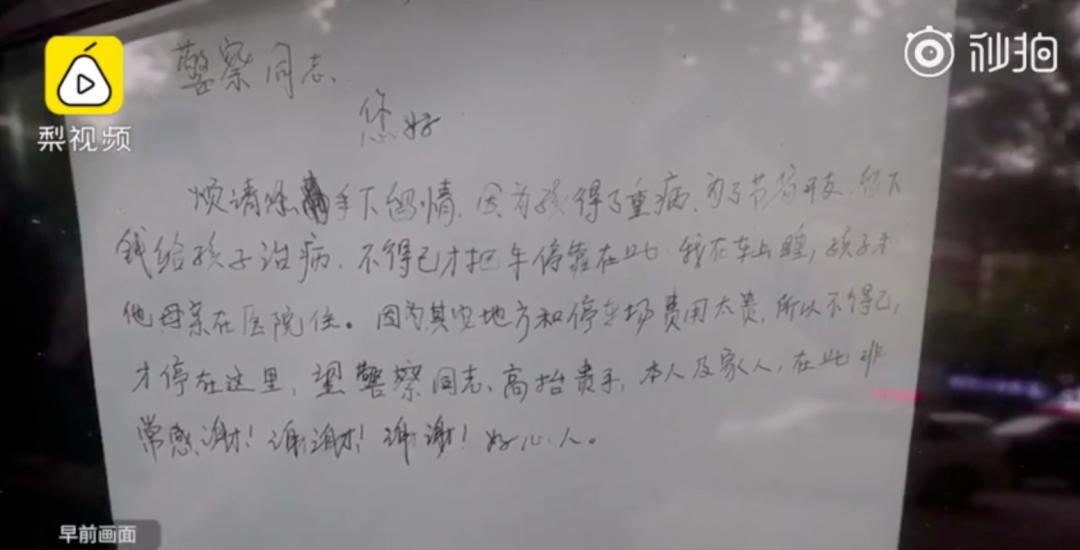 梨视频
秒拍
警察同志、
您好
烦请您手下留情、因为孩得了重病、为了节省开支、留下
钱给孩子治病、不得已才把车停靠在此、我在车上睡，孩子和
他母亲在医院住。因为其它地方和停车场费用太贵，所以不得已，
才停在这里，望警察同志、高抬贵手，本人及家人，在此非
常感谢！谢谢！谢谢！好心人。
早前画面